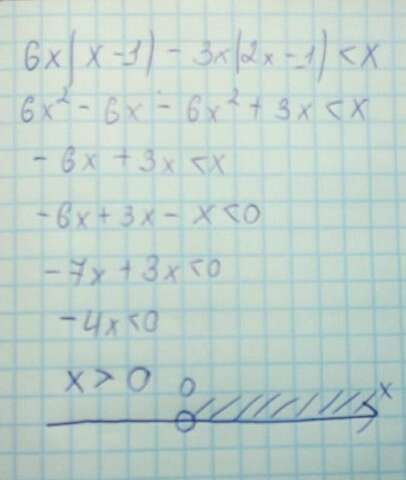 6x(x-1) - 3x(2x-1) < x
6x² - 6x - 6x² + 3x < x
- 6x + 3x < x
- 6x + 3x - x < 0
- 7x + 3x < 0
- 4x < 0
x > 0
0
x